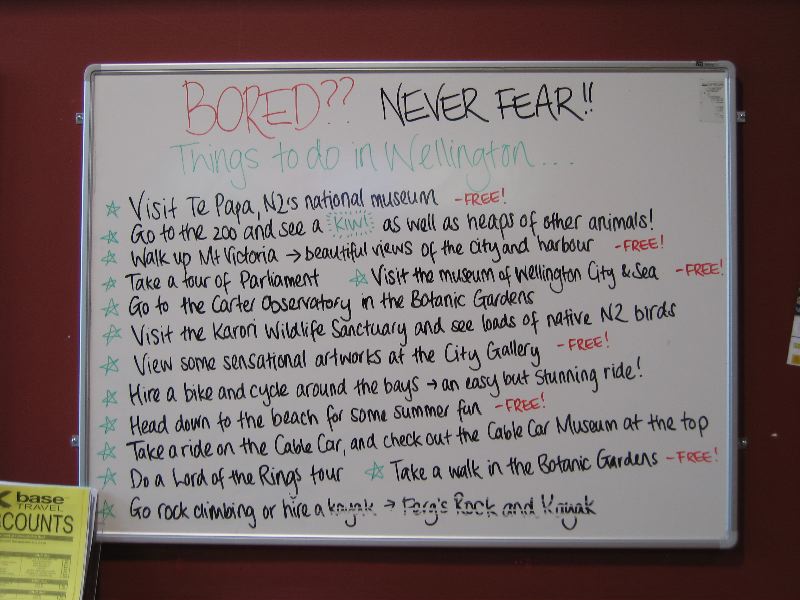 BORED?? NEVER FEAR!!
Things to do in Wellington...
☆ Visit Te Papa, NZ's national museum - FREE!
☆ Go to the zoo and see a KIWI as well as heaps of other animals!
☆ Walk up Mt Victoria → beautiful views of the city and harbour - FREE!
☆ Take a tour of Parliament ☆ Visit the museum of Wellington City & Sea - FREE!
☆ Go to the Carter Observatory in the Botanic Gardens
☆ Visit the Karori Wildlife Sanctuary and see loads of native NZ birds
☆ View some sensational artworks at the City Gallery - FREE!
☆ Hire a bike and cycle around the bays → an easy but stunning ride!
☆ Head down to the beach for some summer fun - FREE!
☆ Take a ride on the Cable Car, and check out the Cable Car Museum at the top
☆ Do a Lord of the Rings tour ☆ Take a walk in the Botanic Gardens - FREE!
☆ Go rock climbing or hire a kayak → Ferg's Rock and Kayak
base
TRAVEL
COUNTS